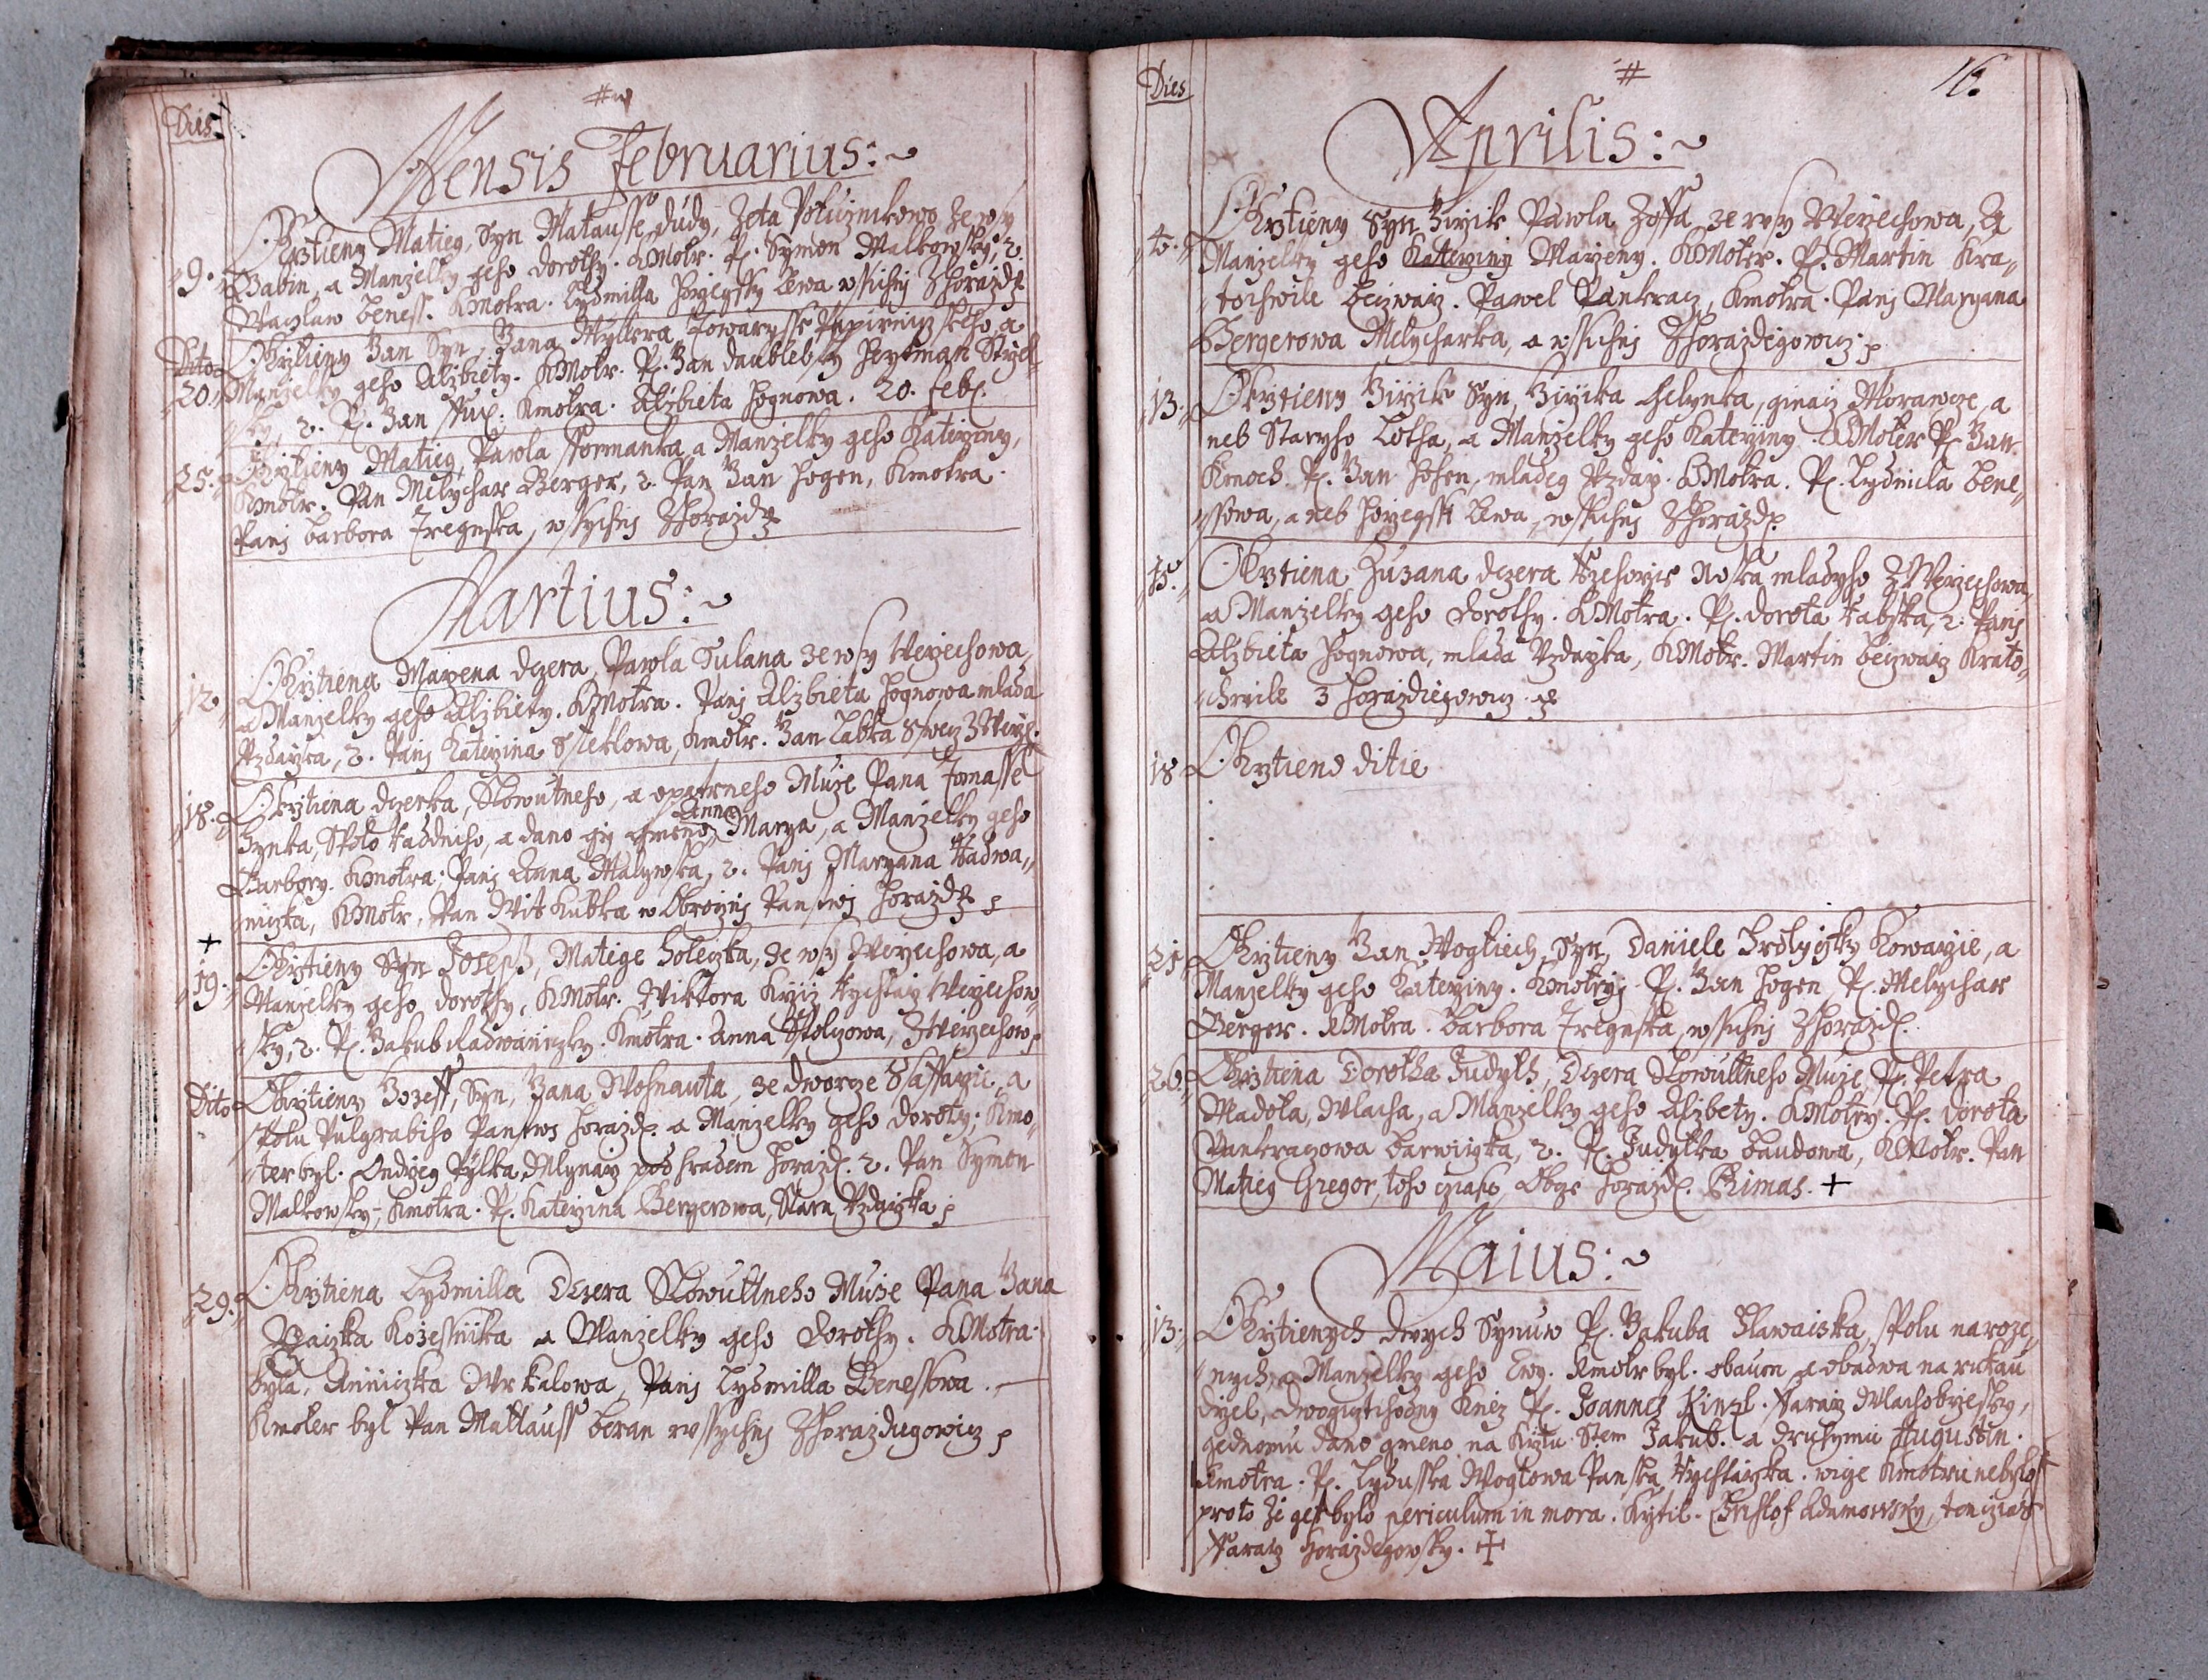 Dies
Mensis Februarius:
9. Okrztieny Matieg, Syn Matausse Dudy, Zeta Potuznikowo, ze wsy
Babin, a Manzelky geho Dorothy. KMotr. P. Symon Malkowsky, 2.
Waczlaw Beness. Kmotra. Lydmilla Horzegssy Lewa wssichnj Zhorazdz
Dito 20. Okrztieny Jan Syn, Jana Myllera, Towaryssе Papirniczskeho, a
Manzelky geho Alzbiety. KMotr. P. Jan Daudlebsky Heytman Strzel-
sky, 2. P. Jan Ffux. Kmotra. Alzbieta Hognowa. 20. Feb.
25. Okrztieny Matieg, Pawla Fformanka a Manzelky geho Katerziny,
Kmotr. Pan Melychar Berger, 2. Pan Jan Hogen, Kmotra.
Panj Barbora Fregnska, wssychnj Zhorazdz
Martius:
12. Okrztiena Marzena dczera, Pawla Sulana ze wsy Werzechowa,
a Manzelky geho Alzbiety. KMotra. Panj Alzbieta Hognowa mlada
Uzdarzka, 2. Panj Katerzina Steklowa, Kmotr. Jan Labka Sswecz ZWerzch.
18. Okrztiena dczerka, Slowutneho, a opatrneho Muze Pana Tomasse
Zynka, Spolu Raddniho, a dano gij gmeno Anna Marya, a Manzelky geho
Barbory. Kmotra: Panj Anna Malywska, 2. Panj Maryana Radwa„
niczka, KMotr, Pan Wit Kubka w Obroczny Panstwj Horazdz
19. Okrztieny Syn Joseph, Matige Holeczka, ze wsy Werzechowa, a
Manzelky geho Dorothy, KMotr. Wiktora Krziz Rychtarz Werzechow„
sky, 2. P. Jakub Radwaniczky. Kmotra. Anna Stolczowa, ZWerzechow
Dito Okrztieny Jozeff, Syn, Jana Wohnauta, ze dworcze Ssaffarzie, a
spolu Pulgrabiho Panstws Horazd. a Manzelky geho Doroty; Kmo„
ter byl. Ondrzeg Pylka, Mlynarz pod hradem Horazd. 2. Pan Symon
Malkowsky, Kmotra. P. Katerzina Bergerowa, Stara Uzdarzka
29. Okrztiena Lydmilla Dczera Slowuttneho Muze Pana Jana
Waczka Kozessnika a Manzelky geho Dorothy. KMotra.
byla, Anniczka Wrkalowa, Panj Lydmilla Benessowa.
Kmoter byl Pan Mattauss Beran wssychnj Zhorazdiegowicz
Dies
16.
Aprilis:
4. Okrztieny Syn Jirzik Pawla Zossa, ze wsy Werzechowa, a
Manzelky geho Katerziny Marzeny. KMoter. P. Martin Kra„
tochwile Beczwarz. Pawel Pankracz, Kmotra. Panj Maryana
Bergerowa Melycharka, a wssichnj Zhorazdegowicz.
13. Okrztieny Jirzik Syn, Jirzika Chelynka, ginacz Morawcze, a
neb Staryho Lotha, a Manzelky geho Katerziny. KMoter P. Jan
Kmoch. P. Jan Hohen, mladeg Uzdarz. KMotra. P. Lydmila Bene„
ssowa, aneb Horzegssi Lewa, wssichnj Zhorazd.
15. Okrztiena Zuzana dczera Rzehorze Noska mladyho ZWerzechowa,
a Manzelky geho Dorothy. KMotra. P. Dorota Rabska, 2. Panj
Alzbieta Hognowa, mlada Uzdarzka, KMotr. Martin Beczwarz Krato„
chwile z Horazdiegowicz.
18 Okrztieno ditie
21. Okrztieny Jan Wogtiech, Syn, Daniele Hrdlyczky Kowarzie, a
Manzelky geho Katerziny. Kmotrzj. P. Jan Hogen, P. Melychar
Berger. KMotra. Barbora Fregnska, wssichnj Zhorazd.
26. Okrztiena Dorotha Judyth, Dczera Slowuttneho Muze, P. Petra
Madola, Wlacha, a Manzelky geho Alzbety. KMotry. P. Dorota
Pankraczowa Barwirzka, 2. P. Judytka Baudowa, KMotr. Pan
Matieg Gregor, toho czasu, Obgr Horazd. Primas.
Maius:
13. Okrztienych dwych Synuw P. Jakuba Hlawaczka, spolu naroze„
nych, a Manzelky geho Ewy. Kmotr byl. obaum a obadwa na rukau
drzel, dwogicztihodny Kniez P. Joannes Kinzl. Fararz Wlachobrzesky,
gednomu dano gmeno na Krztu Stem Jakub. a druhymu Augustin.
Kmotra. P. Lydusska Wogtowa Panska Rychtarzka. wicze Kmotru nebylo
proto ze gest bylo periculum in mora. Krztil. Christof Adamowsky, ton czias
Fararz Horazdegowsky.